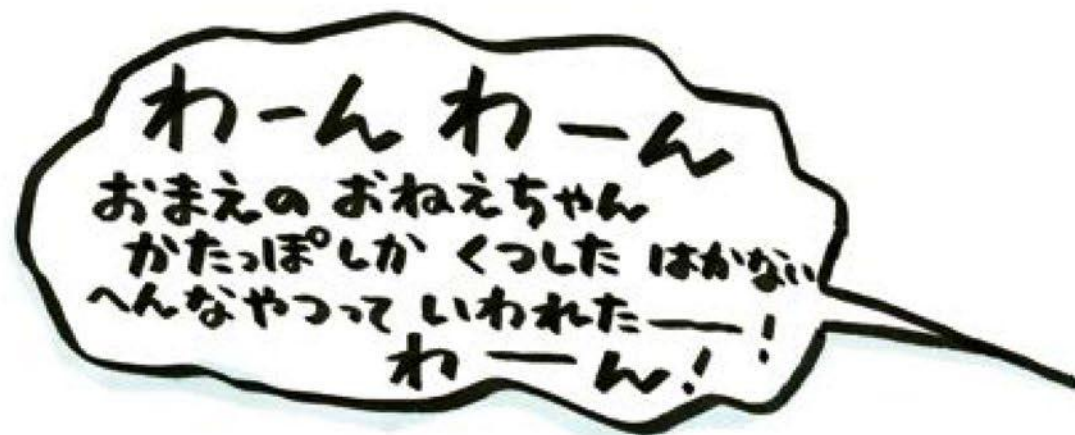 わーん わーん
おまえの おねえちゃん
かたっぽしか くつした はかない
へんなやつって いわれたーー!
わーん!